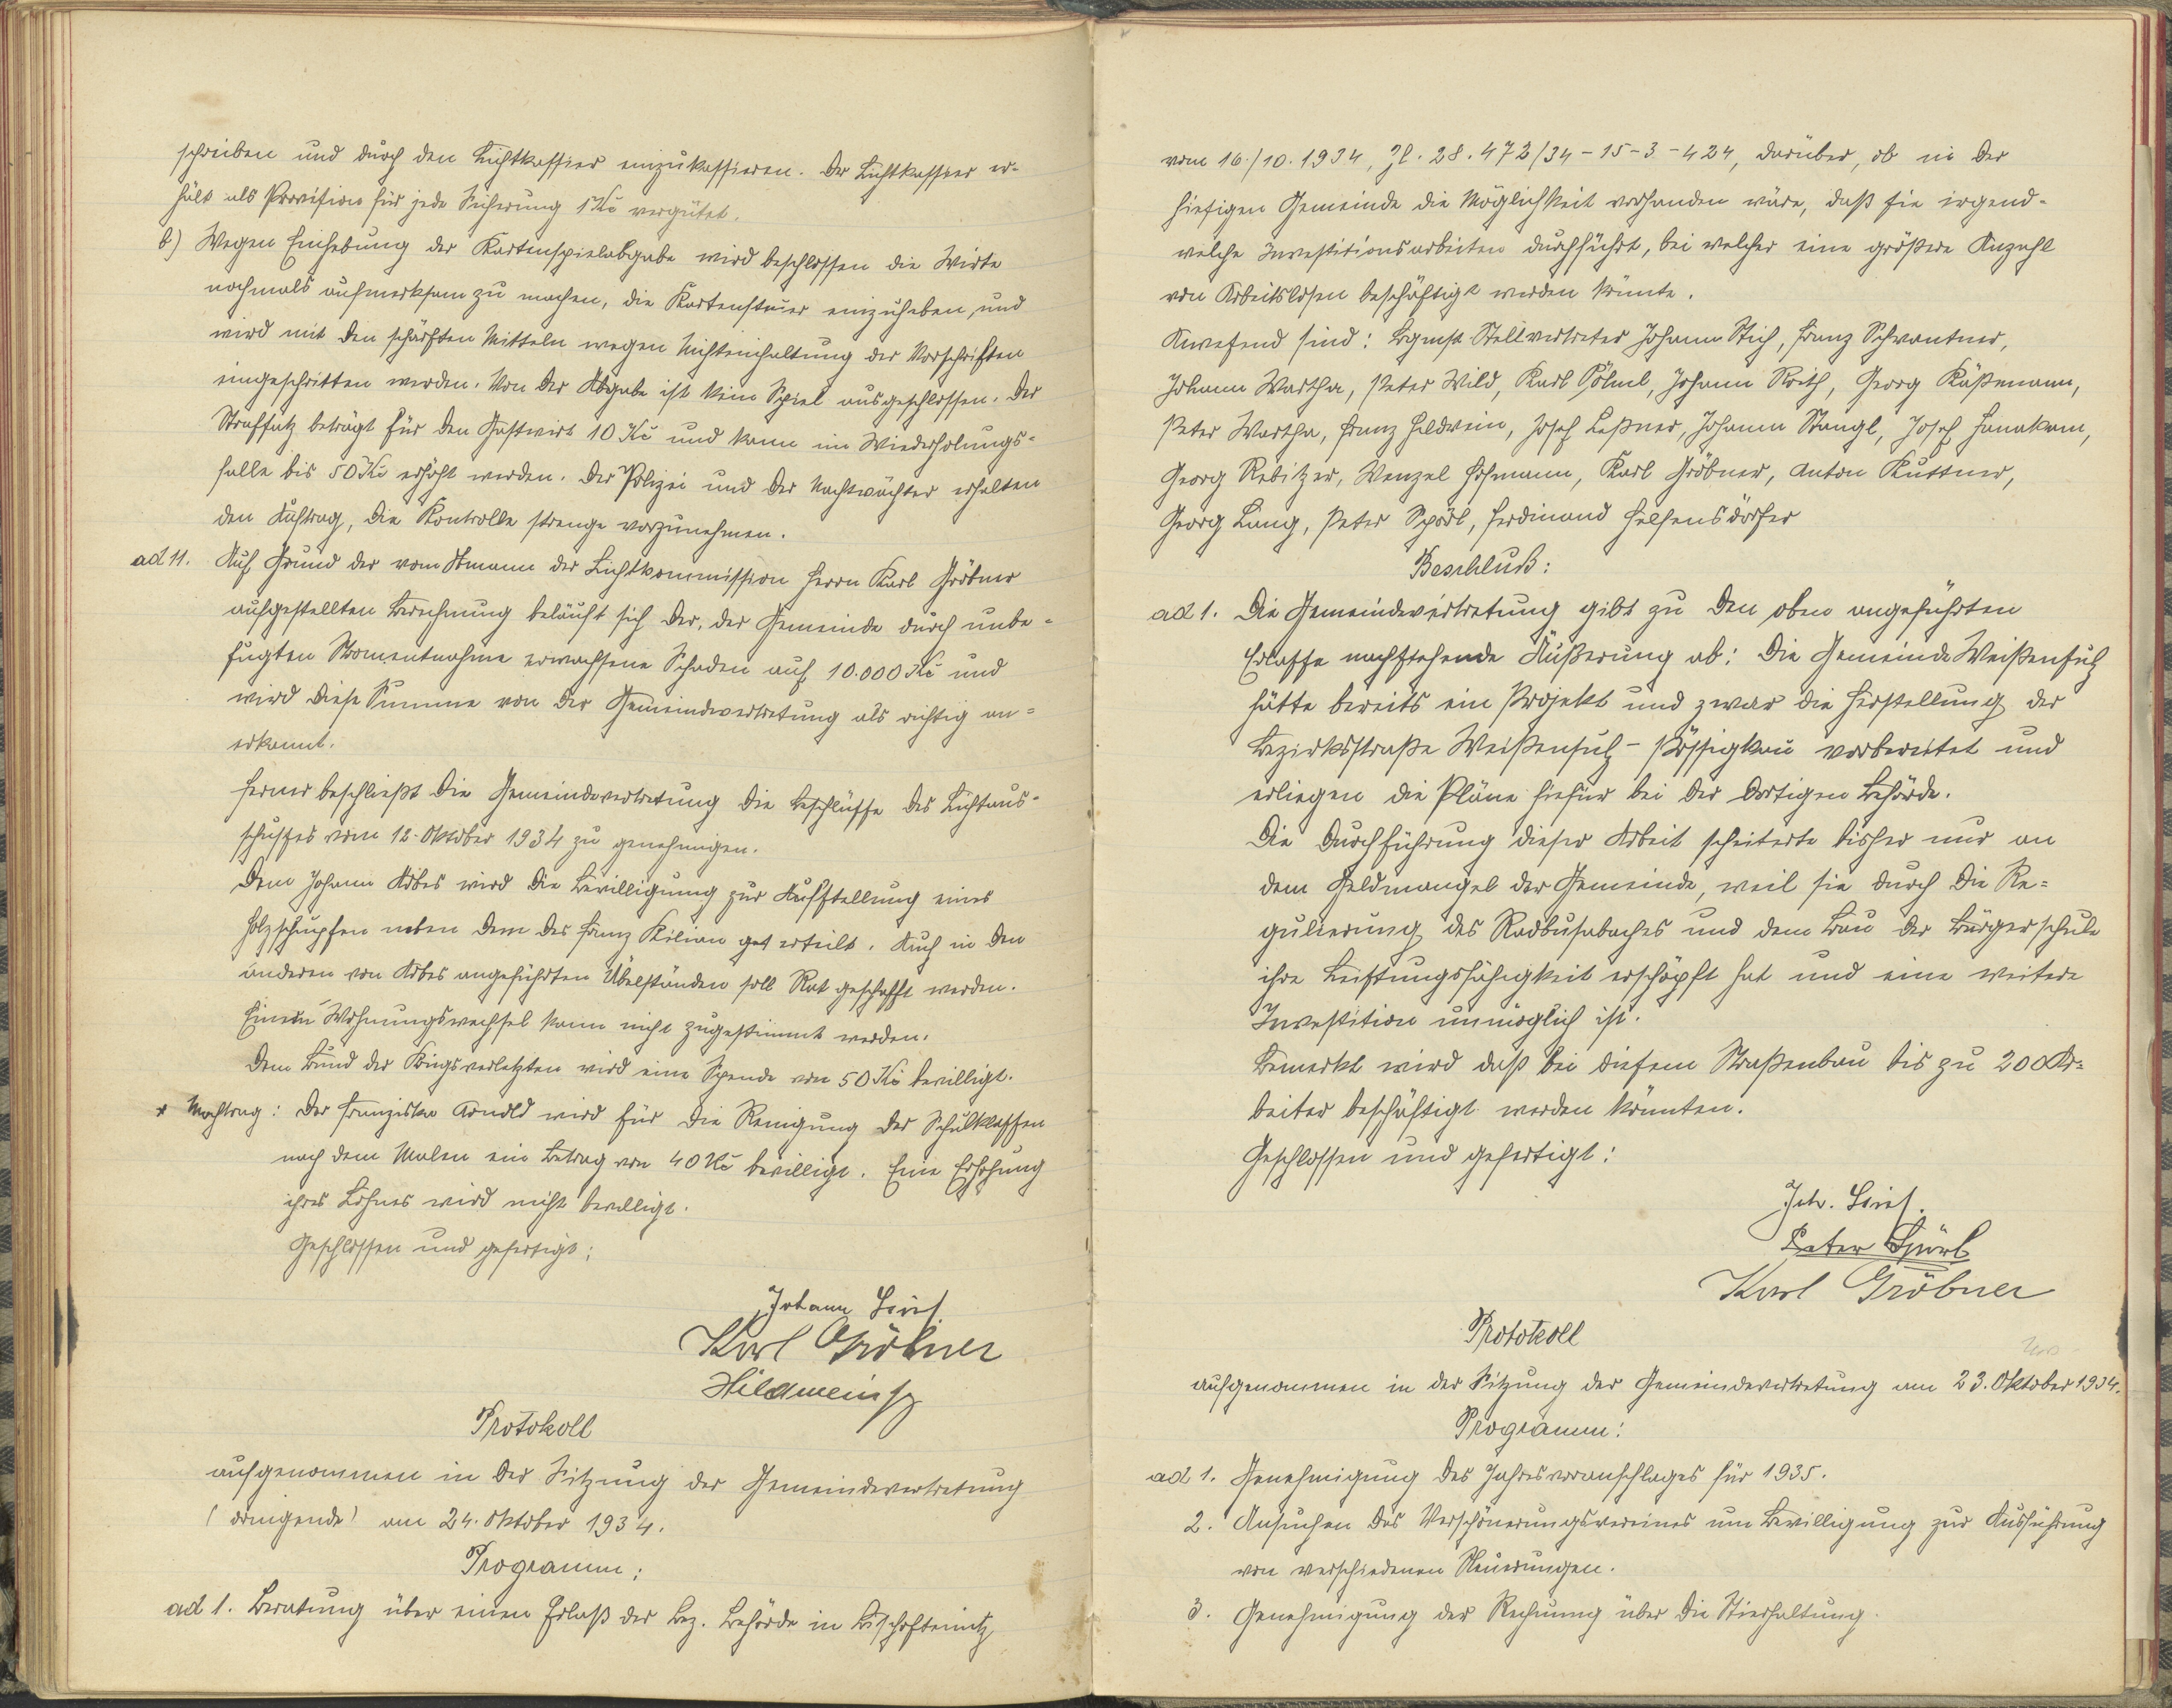 schreiben und durch den Lichtkassier einzukassieren. Der Lichtkassier er-
hält als Provision für jede Sicherung 1 Kč vergütet.
b) Wegen Einhebung der Kartenspielabgabe wird beschlossen die Wirte
nochmals aufmerksam zu machen, die Kartensteuer einzuheben und
wird mit den schärfsten Mitteln wegen Nichteinhaltung der Vorschriften
eingeschritten werden. Von der Abgabe ist kein Spiel ausgeschlossen. Der
Strafsatz beträgt für den Gastwirt 10 Kč und kann im Wiederholungs-
falle bis 50 Kč erhöht werden. Der Polizei und der Nachtwächter erhalten
den Auftrag, die Kontrolle strenge vorzunehmen.
ad 11. Auf Grund der vom Obmann der Lichtkommission Herrn Karl Gröbner
aufgestellten Berechnung beläuft sich der, der Gemeinde durch unbe-
fugten Stromentnahme erwachsene Schaden auf 10.000 Kč und
wird diese Summe von der Gemeindevertretung als richtig an-
erkannt.
Ferner beschließt die Gemeindevertretung die Beschlüsse des Lichtaus-
schußes vom 12. Oktober 1934 zu genehmigen.
Dem Johann Arbes wird die Bewilligung zur Aufstellung eines
Holzschupfen neben dem des Franz Kilian get erteilt. Auch in den
anderen von Arbes angeführten Übelständen soll Rat geschafft werden.
Einem Wohnungswechsel kann nicht zugestimmt werden.
Dem Bund der Kriegsverletzten wird eine Spende von 50 Kč bewilligt.
x Nachtrag: Der Franziska Arnold wird für die Reinigung der Schulklassen
nach dem Malen ein Betrag von 40 Kč bewilligt. Eine Erhöhung
ihres Lohnes wird nicht bewilligt.
Geschlossen und gefertigt:
Johann
Karl Gröbner
Protokoll
aufgenommen in der Sitzung der Gemeindevertretung
(dringende) am 24. Oktober 1934.
Programm:
ad 1. Beratung über einen Erlaß der Bez. Behörde in Bischofteinitz
vom 16./10. 1934, Zl. 28.472/34-15-3-424, darüber, ob in der
hiesigen Gemeinde die Möglichkeit vorhanden wäre, daß sie irgend-
welche Investitionsarbeiten durchführt, bei welcher eine größere Anzahl
von Arbeitslosen beschäftigt werden könnte.
Anwesend sind: Bgmst Stellvertreter Johann Stich, Franz Schwantner,
Johann Wartha, Peter Wild, Karl Johann Roith, Georg Käßmann,
Peter Wartha, Franz Heldwein, Josef Leßner, Johann Stangl, Josef Hanakam,
Georg Rebitzer, Wenzel Hohmann, Karl Gröbner, Anton Kuttner,
Georg Lang, Peter Spörl, Ferdinand Helfensdörfer
Beschluß:
ad 1. Die Gemeindevertretung gibt zu den oben angeführten
Erlasse nachstehende Äußerung ab: Die Gemeinde Weißensulz
hätte bereits ein Projekt und zwar die Herstellung der
Bezirksstraße Weißensulz - Pössigkau vorbereitet und
erliegen die Pläne hiefür bei der dortigen Behörde.
Die Durchführung dieser Arbeit scheiterte bisher nur an
dem Geldmangel der Gemeinde, weil sie durch die Re-
gulierung des Radbusabaches und dem Bau der Bürgerschule
ihre Leistungsfähigkeit erschöpft hat und eine weitere
Investition unmöglich ist.
Bemerkt wird daß bei diesem Straßenbau bis zu 200 Ar-
beiter beschäftigt werden könnten.
Geschlossen und gefertigt:
Joh.
Peter Spörl
Karl Gröbner
Protokoll
aufgenommen in der Sitzung der Gemeindevertretung am 23. Oktober 1934.
Programm:
ad 1. Genehmigung des Jahresvoranschlages für 1935.
2. Ansuchen des Verschönerungsvereines um Bewilligung zur Ausführung
von verschiedenen Neuerungen.
3. Genehmigung der Rechnung über die Stierhaltung.